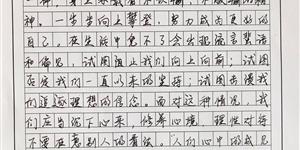 神，身上承载着不认输、不服输的精
神。一步步向上攀登，努力成为更好的
自己。在生活中免不了会出现流言蜚语
和偏见，试图阻止我们向上向前；试图
改变我们一直以来的坚持；试图击溃我
们追逐理想的信念。面对这种情况，我
们应当沉下心来，修养心境，理性对待
不要在意别人的看法。“人们心中的成见